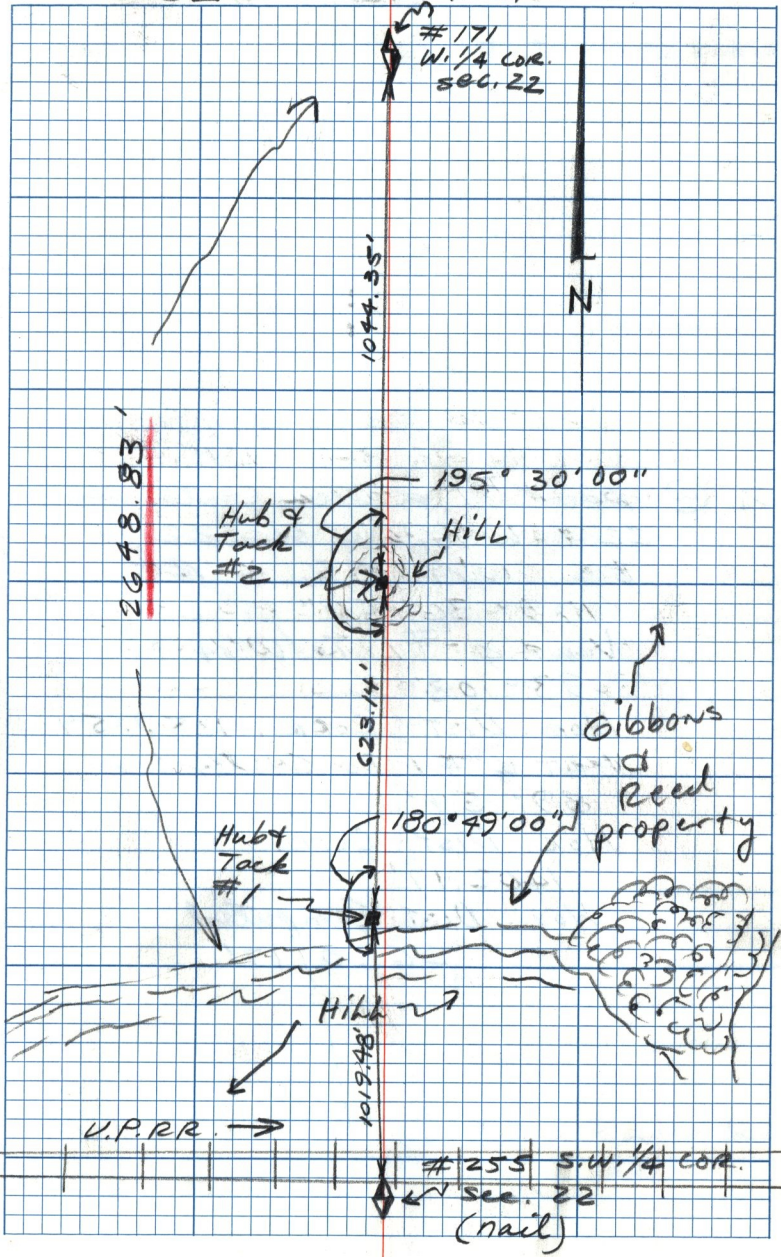 # 171
W. 1/4 COR.
sec. 22
1044.35'
N
2648.83'
195° 30' 00"
Hub &
Tack
#2
HiLL
623.14'
Gibbons
&
Reed
property
180° 49' 00"
Hub &
Tack
#1
HiLL
1019.48'
U.P.RR.
# 255 S.W. 1/4 COR.
sec. 22
(nail)